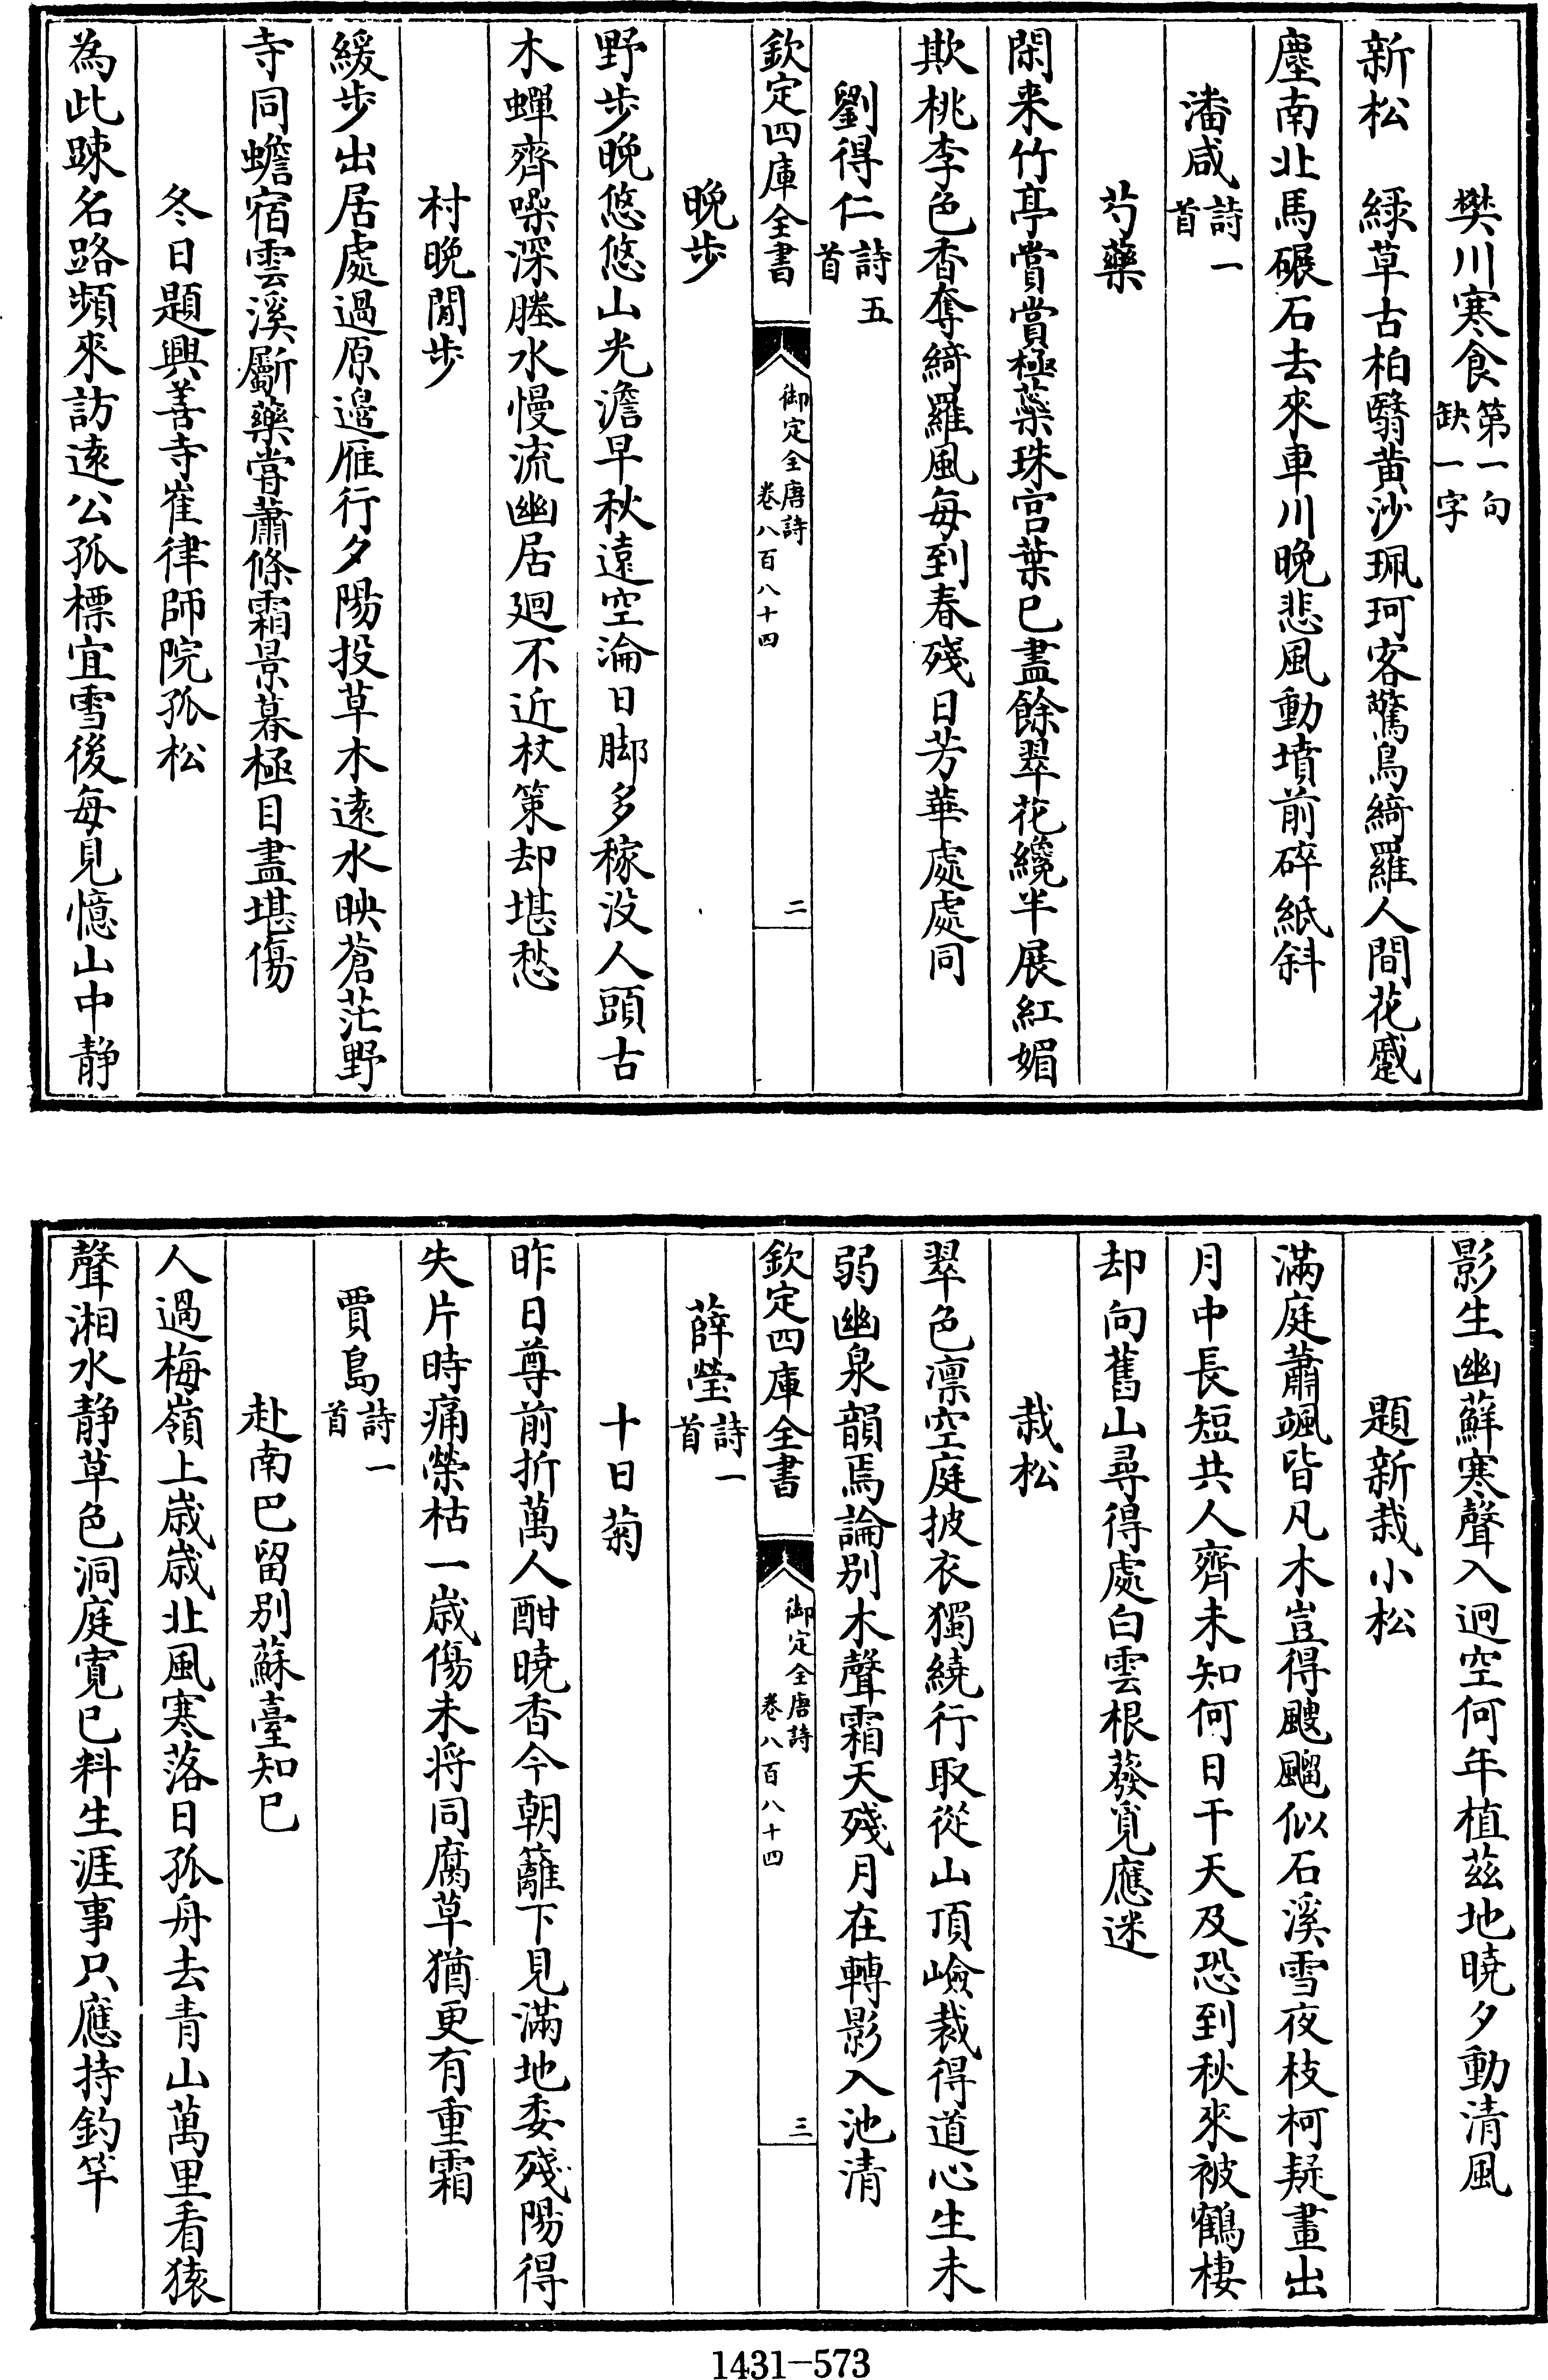 樊川寒食第一句缺一字
新松　緑草古柏翳黄沙珮珂客驚鳥綺羅人間花戚
塵南北馬碾石去來車川晚悲風動墳前碎紙斜
潘咸詩一首
芍藥
閑来竹亭賞賞極蘂珠宫葉已盡餘翠花纔半展紅媚
欺桃李色香奪綺羅風每到春殘日芳華處處同
劉得仁詩五首
欽定四庫全書
御定全唐詩卷八百八十四
二
晚步
野步晚悠悠山光澹早秋遠空淪日脚多稼没人頭古
木蟬齊噪深塍水慢流幽居廻不近杖策却堪愁
村晚閒步
緩步出居處過原邉雁行夕陽投草木遠水映蒼茫野
寺同蟾宿雲溪斸藥甞蕭條霜景暮極目盡堪傷
冬日題興善寺崔律師院孤松
為此踈名路頻來訪逺公孤標宜雪後每見憶山中静
影生幽蘚寒聲入迥空何年植茲地曉夕動清風
題新栽小松
滿庭蕭颯皆凡木豈得颼飀似石溪雪夜枝柯疑畫出
月中長短共人齊未知何日干天及恐到秋來被鶴棲
却向舊山尋得處白雲根蘂覓應迷
栽松
翠色凛空庭披衣獨繞行取從山頂嶮裁得道心生未
弱幽泉韻焉論别木聲霜天殘月在轉影入池清
欽定四庫全書
御定全唐詩卷八百八十四
三
薛瑩詩一首
十日菊
昨日尊前折萬人酣曉香今朝籬下見滿地委殘陽得
失片時痛榮枯一歳傷未将同腐草猶更有重霜
賈島詩一首
赴南巴留别蘇臺知已
人過梅嶺上歳歳北風寒落日孤舟去青山萬里看猿
聲湘水静草色洞庭寛已料生涯事只應持釣竿
1431—573